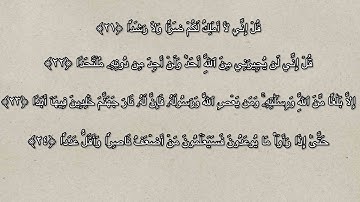 قُلْ إِنِّي لَا أَمْلِكُ لَكُمْ ضَرًّا وَلَا رَشَدًا ﴿٢١﴾
قُلْ إِنِّي لَن يُجِيرَنِي مِنَ اللَّهِ أَحَدٌ وَلَنْ أَجِدَ مِن دُونِهِ مُلْتَحَدًا ﴿٢٢﴾
إِلَّا بَلَاغًا مِّنَ اللَّهِ وَرِسَالَاتِهِ ۚ وَمَن يَعْصِ اللَّهَ وَرَسُولَهُ فَإِنَّ لَهُ نَارَ جَهَنَّمَ خَالِدِينَ فِيهَا أَبَدًا ﴿٢٣﴾
حَتَّىٰ إِذَا رَأَوْا مَا يُوعَدُونَ فَسَيَعْلَمُونَ مَنْ أَضْعَفُ نَاصِرًا وَأَقَلُّ عَدَدًا ﴿٢٤﴾